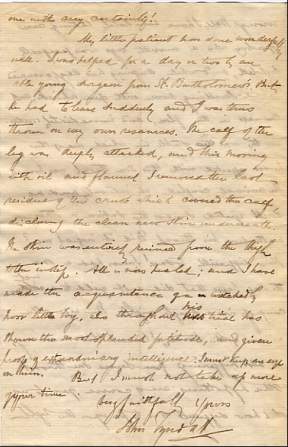 one with any certainty!
My little patient has done wonderfully
well. I was helped for a day or two by an
able young surgeon from St. Bartholomew's. But
he had to leave suddenly and I was thus
thrown on my own resources. The calf of the
leg was deeply attacked, and this morning
with oil and flannel I removed the last
residue of the crust which covered the calf,
disclosing the clean new skin underneath.
The skin was entirely ruined from the thigh
to the instep. All is now healed; and I have
made the acquaintance of a
poor little boy, who throughout his trial has
shown the most splendid fortitude, and given
proof of extraordinary intelligence. I must keep an eye
on him.
But I must not take up more
of your time.
Very faithfully Yours
John Tyndall